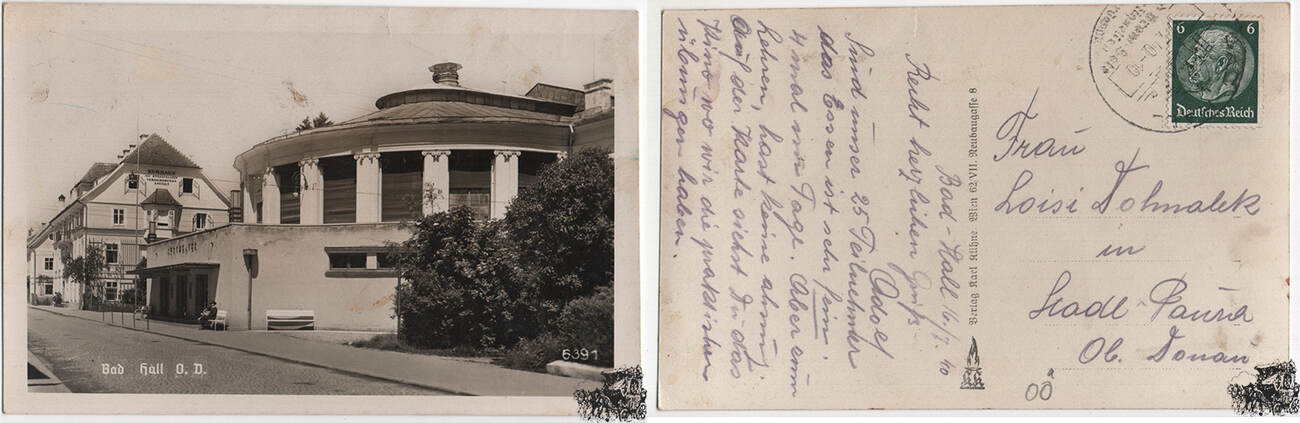 KURHAUS
Bad Hall O. D.
6391
Bad-Hall 16/7. 40
Recht herzlichen Gruß
Adolf
Sind unser 25 Teilnehmer
das Essen ist sehr fein.
4 mal im Tage. Aber vom
Lehren, hast keine ahnung
Auf der Karte siehst Du das
Kino wo wir die praktischen
übungen haben.
Verlag Karl Kühne, Wien 62 VII. Neubaugasse 8
6 6
Deutsches Reich
Frau
Loisi Dohnalek
in
Stadl Paura
Ob. Donau
OÖ